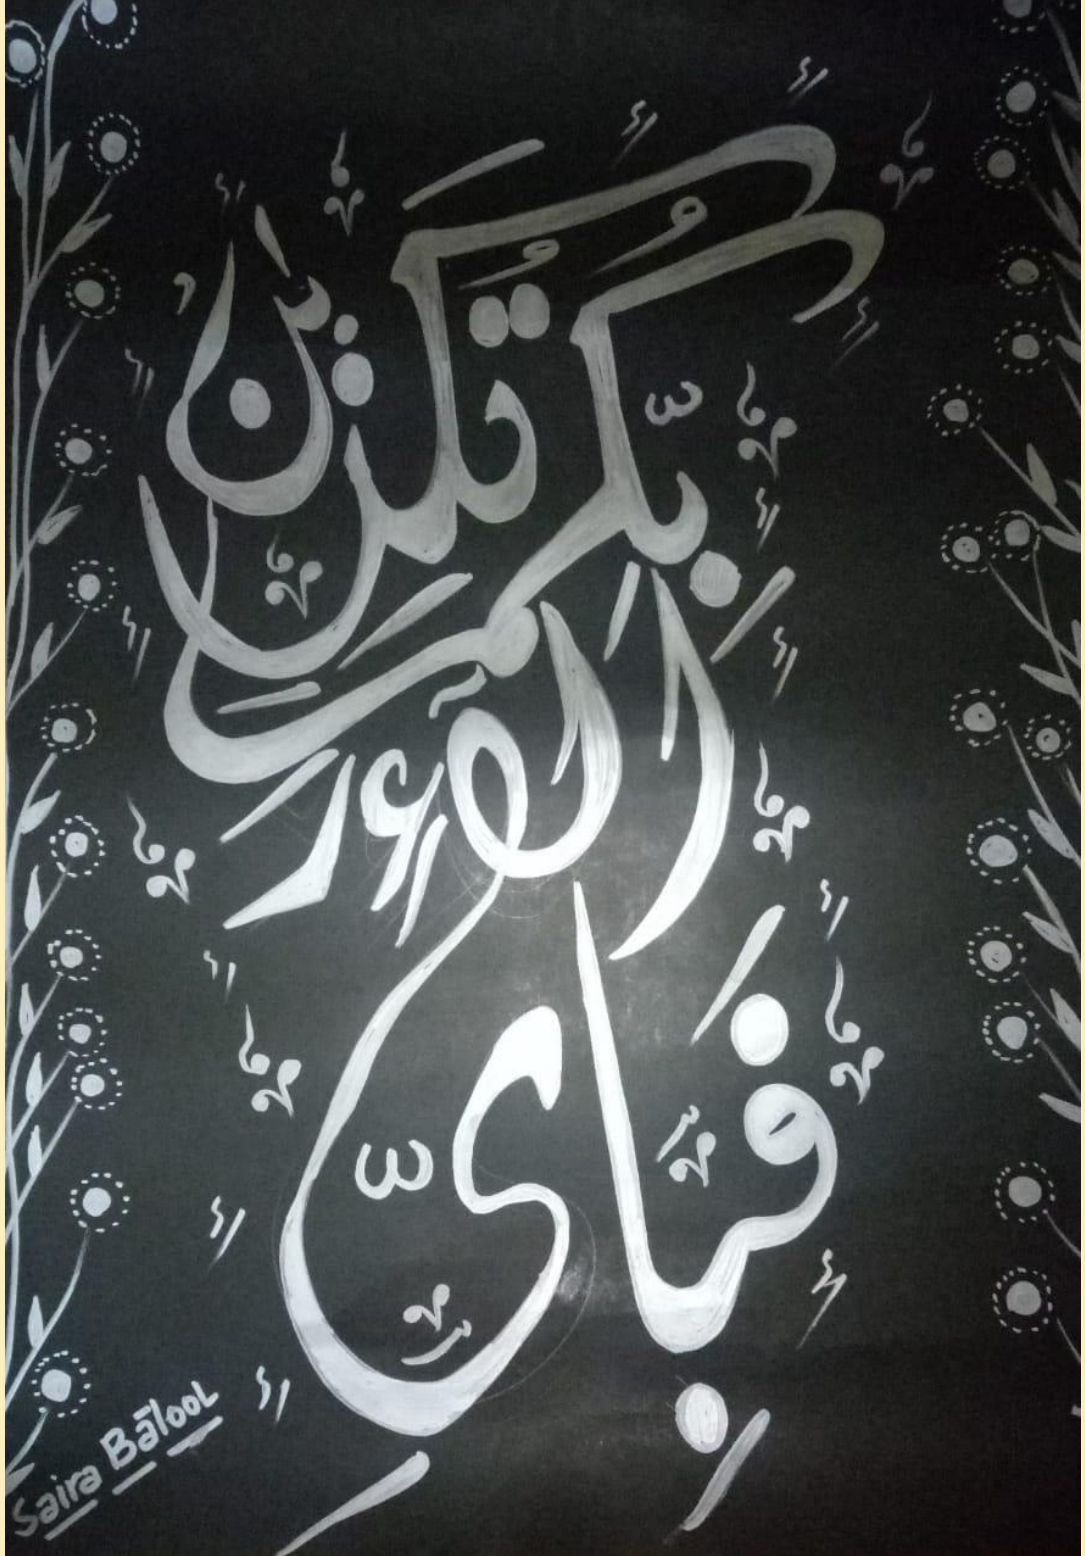 فَبِاَیِّ
اٰلَآءِ
رَبِّكُمَا تُكَذِّبٰنِ
Saira Batool